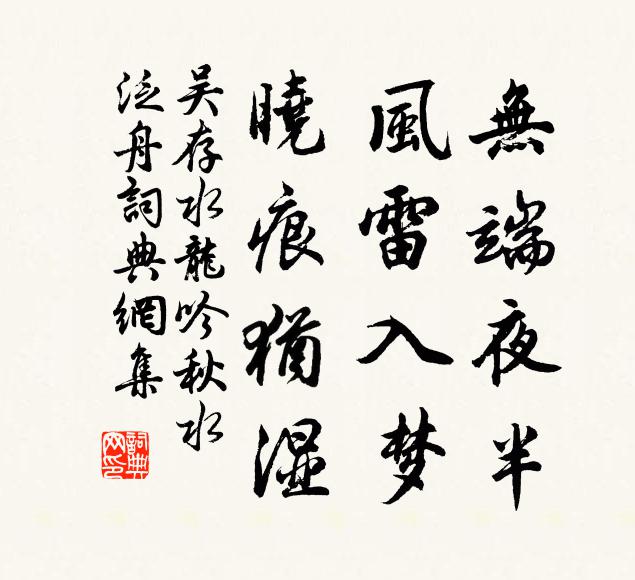 無端夜半
風雷入梦
曉痕猶濕
吴存水龍吟秋水
泛舟詞典網集
詞典网印